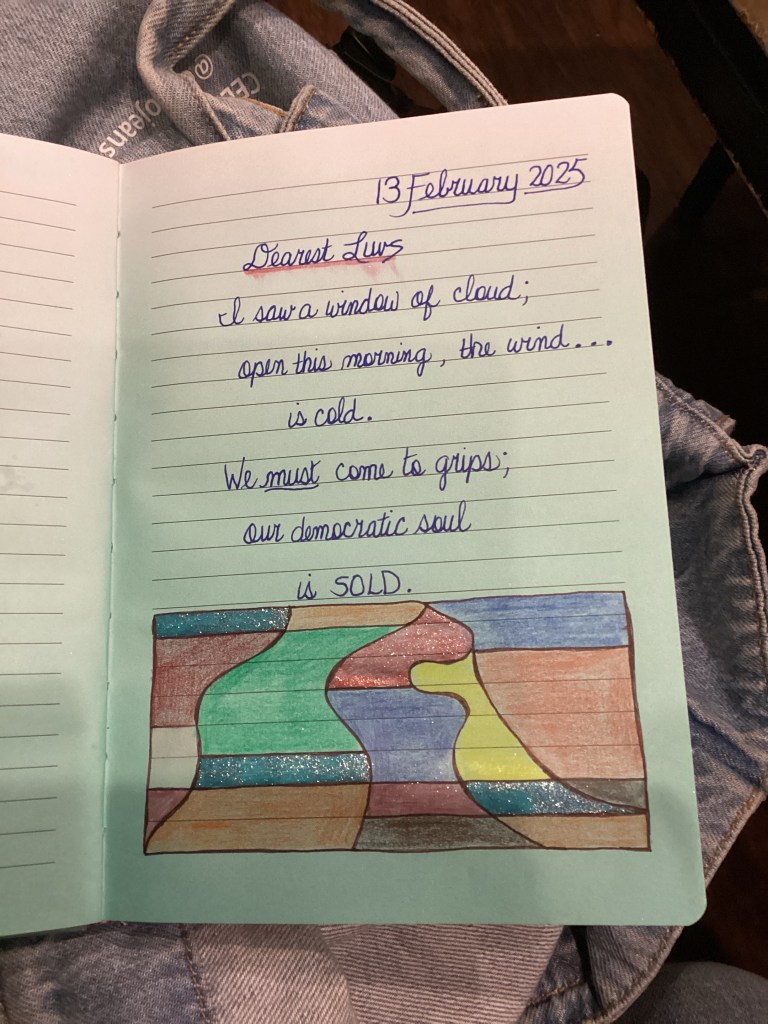 13 February 2025
Dearest Luvs
I saw a window of cloud;
open this morning, the wind...
is cold.
We must come to grips;
our democratic soul
is SOLD.